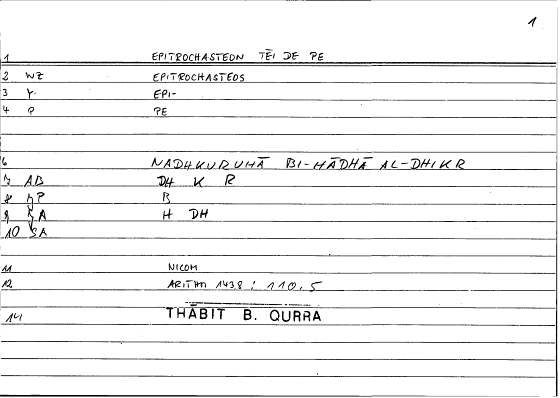 1
1 EPITROCHASTEON TĒI DE PE
2 WZ EPITROCHASTEOS
3 Y. EPI-
4 P PE
6 NADHKURUHĀ BI-HĀDHĀ AL-DHIKR
7 AB DH K R
8 P B
9 A H DH
10 SA
11 NICOM
12 ARITHM 1438 : 110.5
14 THĀBIT B. QURRA